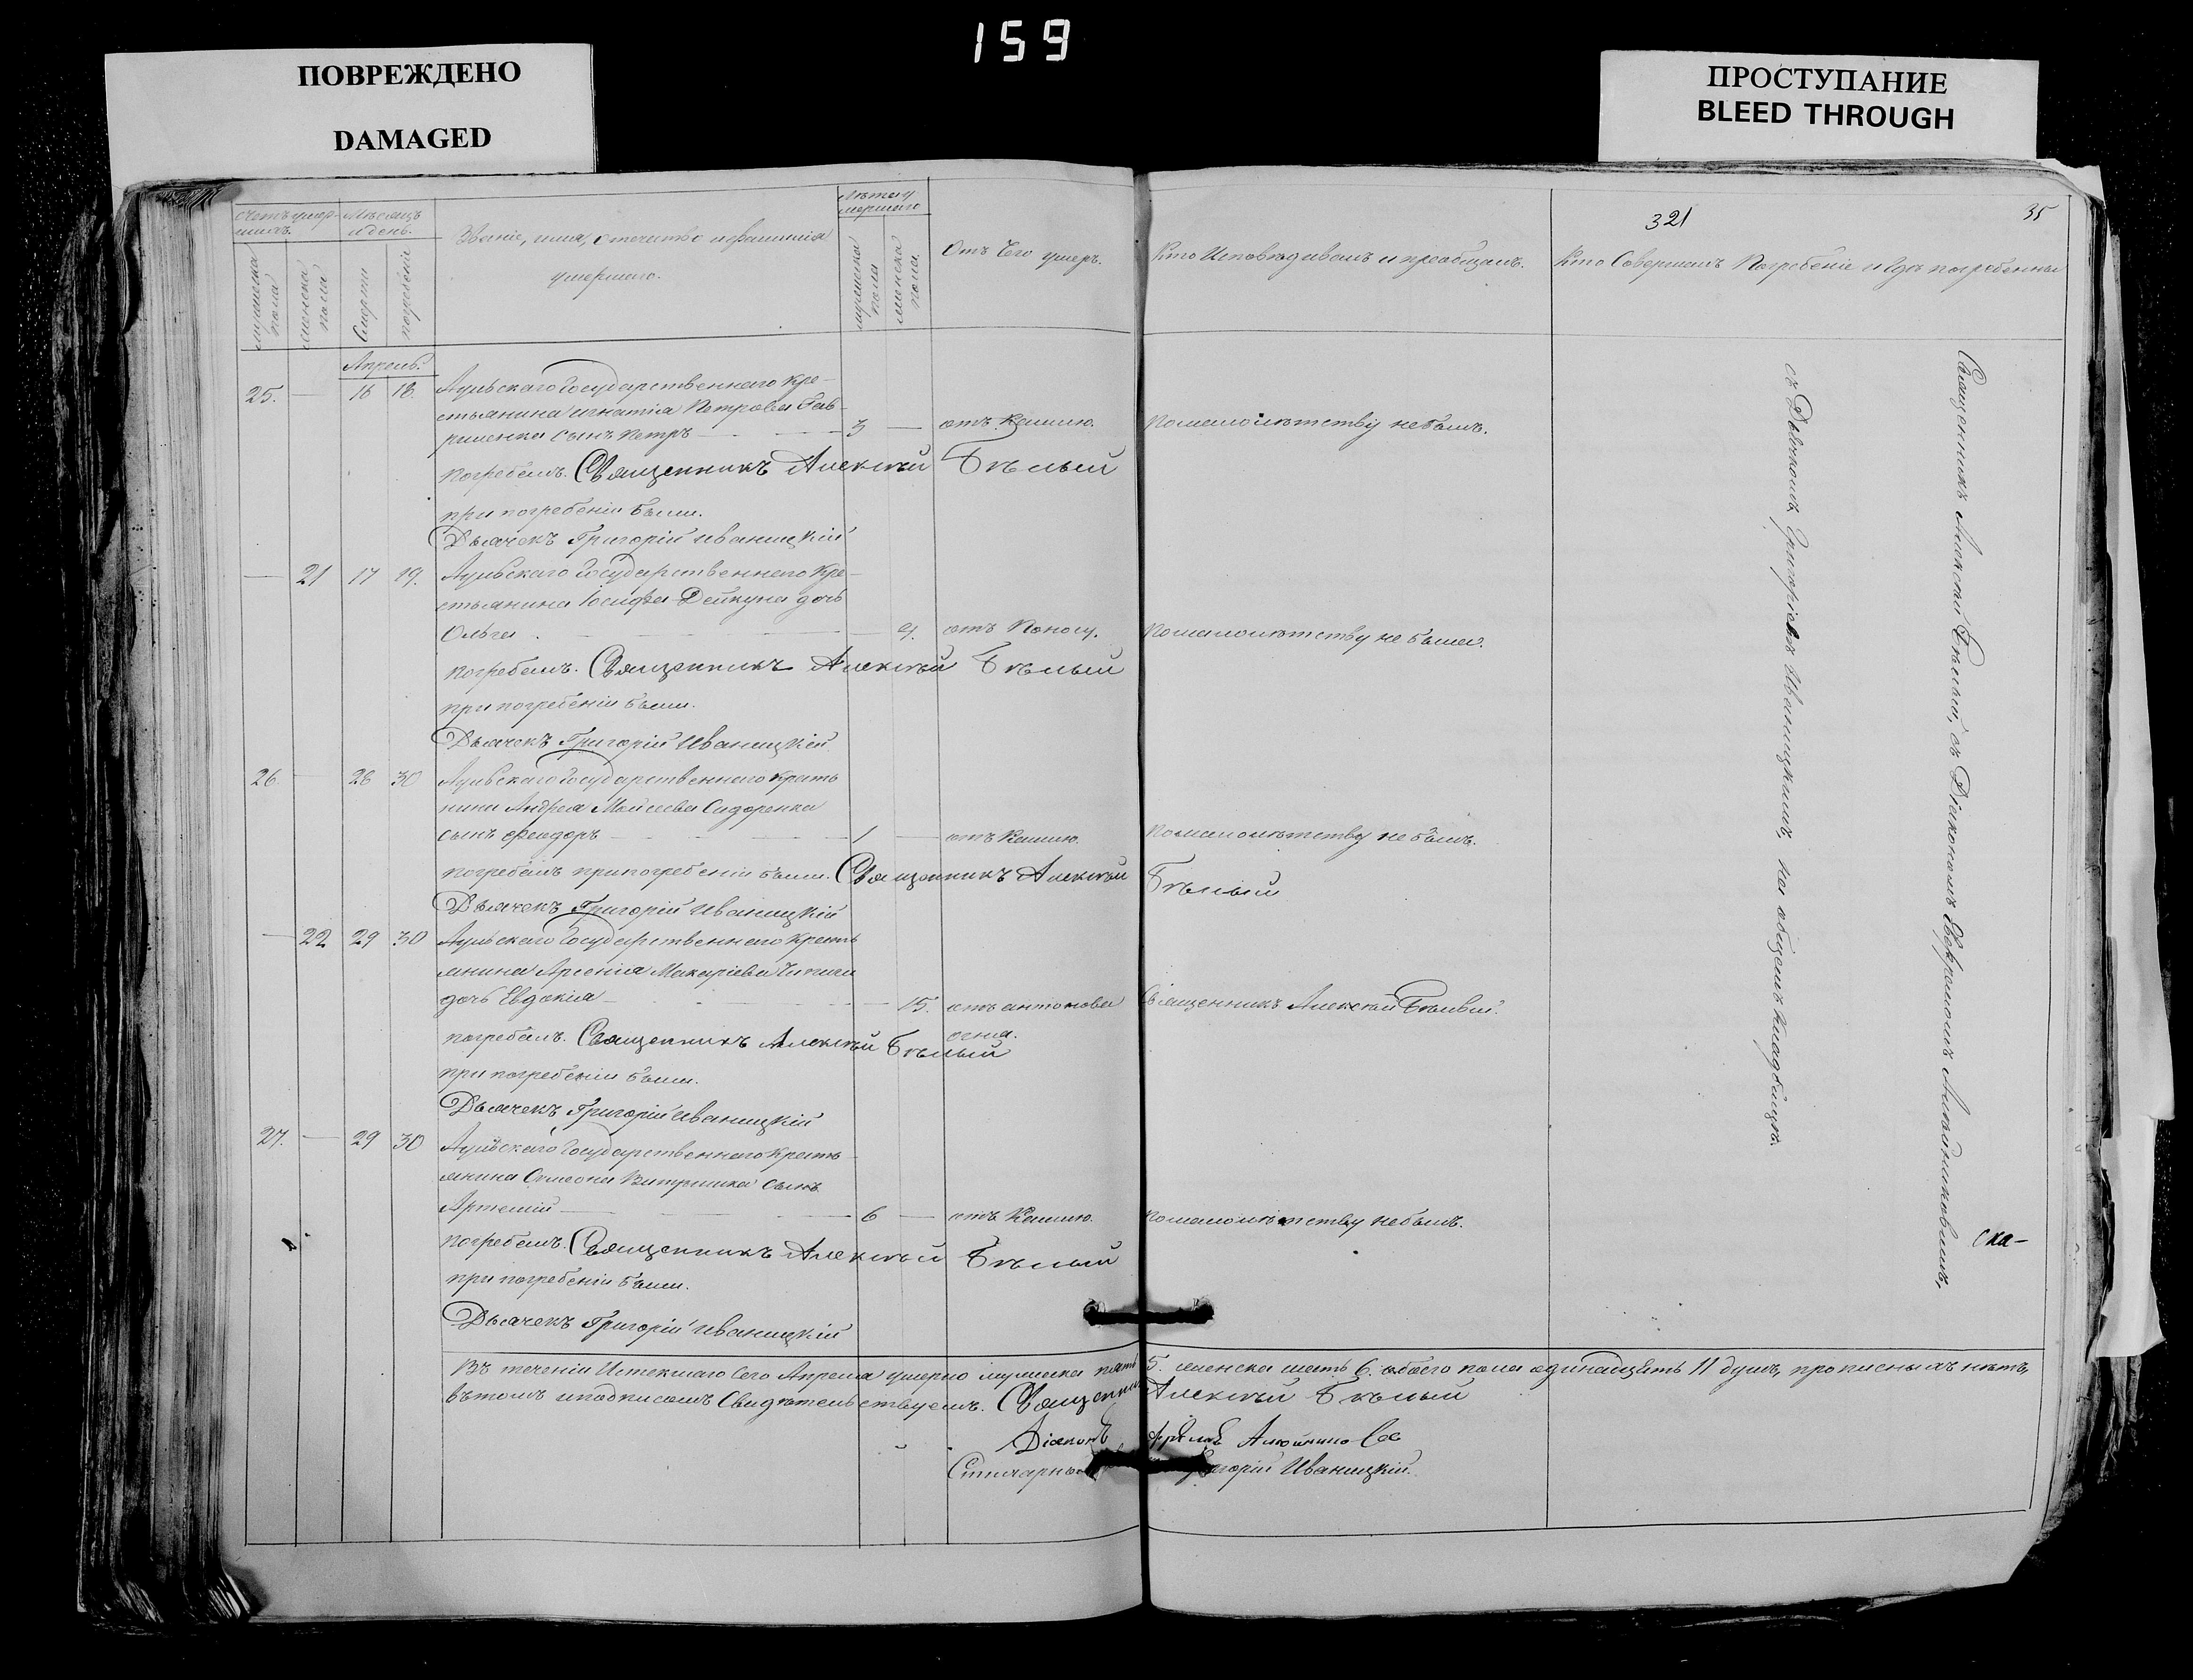 159
ПОВРЕЖДЕНО
DAMAGED
ПРОСТУПАНИЕ
BLEED THROUGH
321
35
Счетъ умер-
шихъ.
Мѣсяцъ
и день.
Званіе, имя, отечество и фамилія
умершаго.
Лѣта у
мершаго
Отъ Чего умеръ.
Кто Исповѣдывалъ и пріобщалъ.
Кто Совершалъ Погребеніе и гдѣ погребены
мужеска
пола
женска
пола
Смерти
погребенія
мужеска
пола
женска
пола.
Апрель.
25. — 16 18. Аульскаго Государственнаго Кре-
стьянина Игнатія Петрова Гав-
риленка сынъ Петръ — 3 — отъ Кашлю. По малолѣтству не былъ.
погребалъ. Священникъ Алексѣй Бѣлый
при погребеніи были.
Дьячекъ Григорій Иваницкій
— 21 17 19. Аульскаго Государственнаго Кре-
стьянина Іосифа Дейкуна дочь
Ольга — 4. отъ Поносу. По малолѣтству не была.
погребалъ. Священникъ Алексѣй Бѣлый
при погребеніи были.
Дьячекъ Григорій Иваницкій
26 28 30 Аульскаго Государственнаго Кресть
нина Андрея Мойсеева Сидоренка
сынъ Феодоръ — 1 — отъ Кашлю. По малолѣтству не былъ.
погребалъ при погребеніи были. Священникъ Алексѣй Бѣлый
Дьячекъ Григорій Иваницкій
— 22 29 30 Аульскаго Государственнаго Кресть
янина Арсенія Макаріева
дочь Евдокія — 15. отъ антонова Священникъ Алексѣй Бѣлый.
огня.
погребалъ. Священникъ Алексѣй Бѣлый
при погребеніи были.
Дьячекъ Григорій Иваницкій
27. — 29 30 Аульскаго Государственнаго Кресть
янина Симеона сынъ
Артемій — 6 — отъ Кашлю. По малолѣтству не былъ.
погребалъ. Священникъ Алексѣй Бѣлый
при погребеніи были.
Дьячекъ Григорій Иваницкій
Священникъ Алексѣй Бѣлый, съ Діакономъ
съ Дьячкомъ Григоріемъ Иваницкимъ, на общемъ кладбищѣ.
Ска-
Въ теченіи Истекшаго Сего Апреля умерло мужеска пять 5. женска шесть 6. обоего пола одинадцать 11 душъ, прописныхъ нѣтъ,
въ томъ и подписомъ Свидѣтельствуемъ. Священникъ Алексѣй Бѣлый
Діаконъ
Григорій Иваницкій.